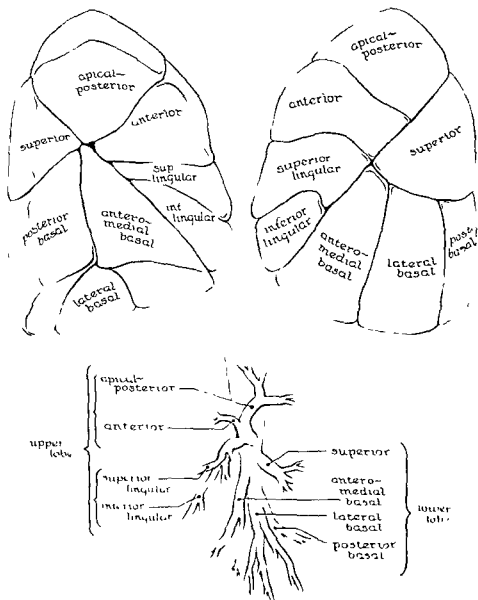 apical-
posterior
anterior
superior
sup
lingular
inf
lingular
posterior
basal
antero-
medial
basal
lateral
basal
apical-
posterior
anterior
superior
superior
lingular
inferior
lingular
antero-
medial
basal
lateral
basal
post
basal
apical-
posterior
anterior
upper
lobe
superior
lingular
inferior
lingular
superior
antero-
medial
basal
lateral
basal
posterior
basal
lower
lobe